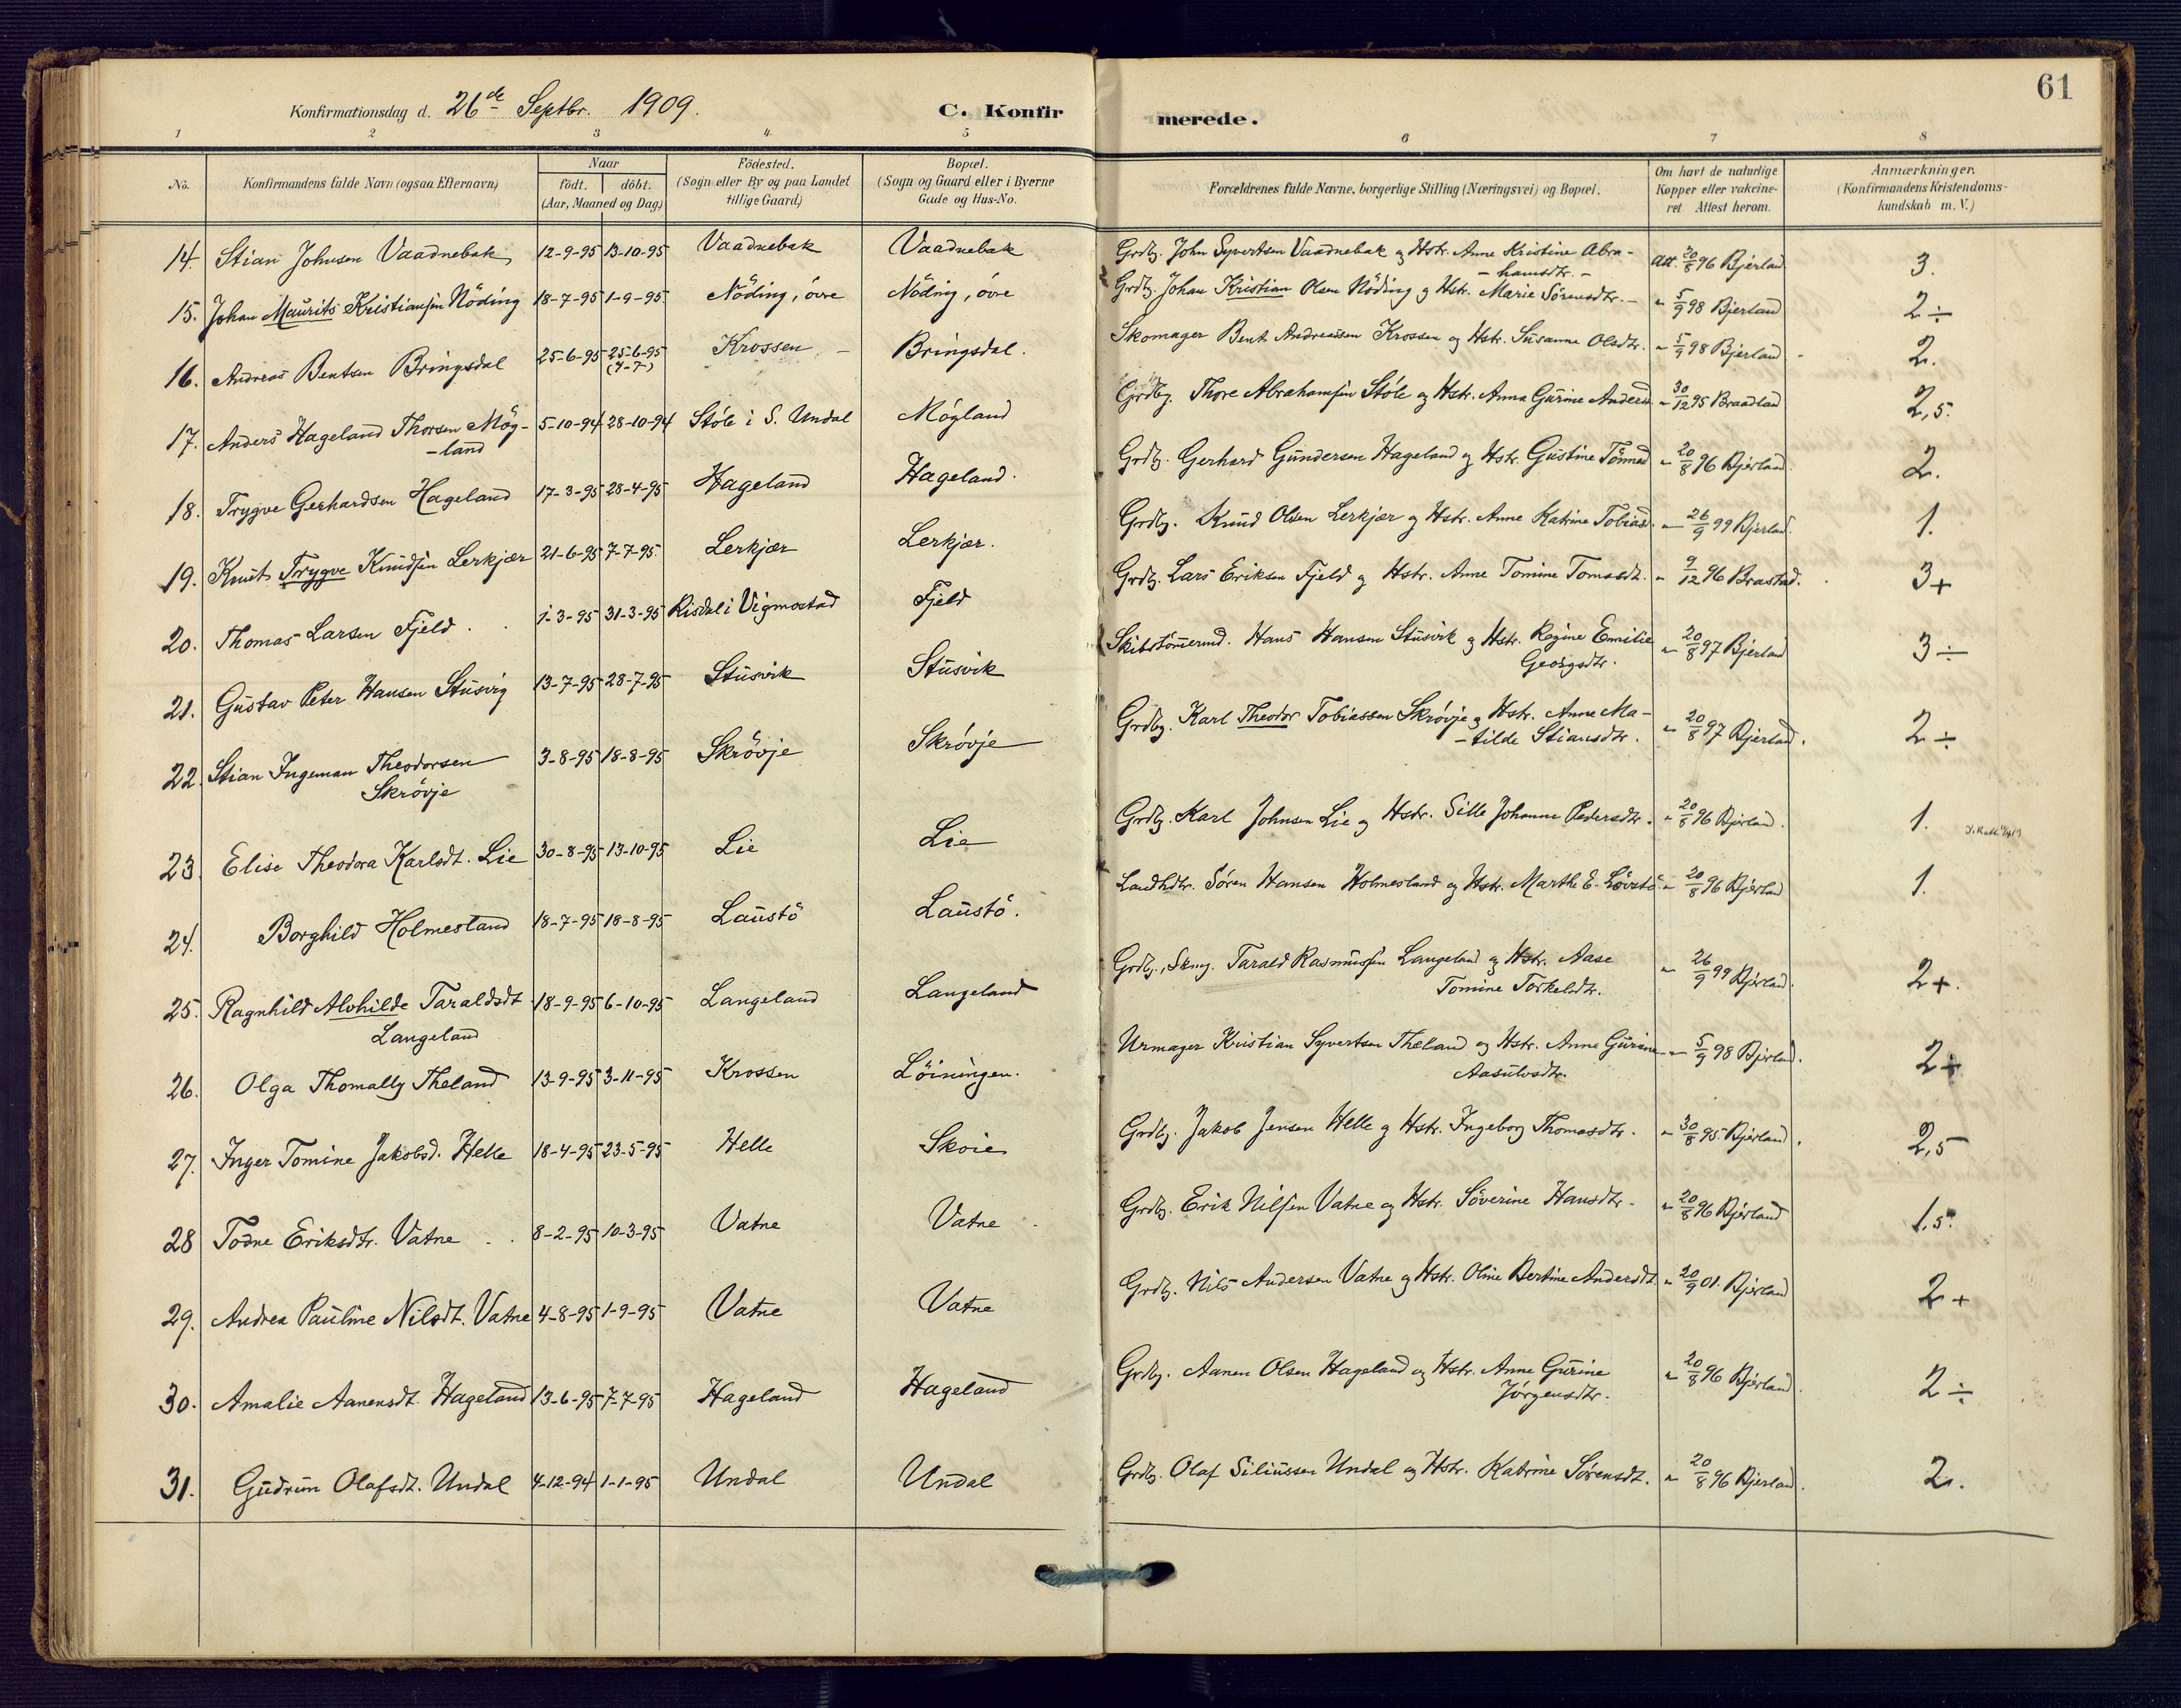 61
Konfirmationsdag d. 26de Septbr. 1909.
C. Konfir merede.
1 2 3 4. 5 6 7 8
No.
Konfirmandens fulde Navn (ogsaa Efternavn)
Naar
födt. döbt.
(Aar, Maaned og Dag.)
Födested.
(Sogn eller By og paa Landet
tillige Gaard.)
Bopæl.
(Sogn og Gaard eller i Byerne
Gade og Hus-No.
Forældrenes fulde Navne, borgerlige Stilling (Næringsvei) og Bopæl.
Om havt de naturlige
Kopper eller vakcine-
ret. Attest herom.
Anmærkninger.
(Konfirmandens Kristendoms-
kundskab m. V.)
14. Stian Johnsen Vaadnebak 12-9-95 13-10-95 Vaadnebak Vaadnebak Grdbg. John Syvertsen Vaadnebak og Hstr. Anne Kristine Abra- Att. 20/8 96 Bjerland 3.
-hamsdtr.-
15. Johan Maurits Kristiansen Nöding 18-7-95 1-9-95. Nöding, övre Nöding, övre Grdbg. Johan Kristian Olsen Nöding og Hstr. Marie Sörensdtr.- " 5/9 98 Bjerland 2÷
16. Andreas Bentsen Bringsdal 25-6-95 25-6-95 Krossen - Bringsdal. Skomager Bent Andreassen Krossen og Hstr. Susanne Olsdtr. " 5/9 98 Bjerland 2.
(4-7)
17. Anders Hageland Thorsen Mög- 5-10-94 28-10-94 Stöle i S. Undal Mögland Grdbg. Thore Abrahamsen Stöle og Hstr. Anna Gurine Andersd " 30/12 95 Braadlad 2,5.
-land
18. Trygve Gerhardsen Hageland 17-3-95 28-4-95 Hageland Hageland. Grdbg. Gerhard Gundersen Hageland og Hstr. Gustine Tönnesd " 20/8 96 Bjerland. 2.
19. Knut Trygve Knudsen Lerkjær 21-6-95 7-7-95. Lerkjær Lerkjær. Grdbg. Knud Olsen Lerkjær og Hstr. Anne Katrine Tobiasd. " 26/9 99 Bjerland. 1.
20. Thomas Larsen Fjeld 1-3-95 31-3-95 Risdal i Vigmostad Fjeld Grdbg. Lars Eriksen Fjeld og Hstr. Anne Tomine Tomasdt. " 9/12 96 Brastad. 3+
21. Gustav Peter Hansen Stusvig 13-7-95 28-7-95 Stusvik Stusvik Skibstömermd. Hans Hansen Stusvik og Hstr. Ragine Emilie " 20/8 97 Bjerland 3÷
Georgsdtr.
22. Stian Ingeman Theodorsen 3-8-95 18-8-95 Skrövje Skrövje Grdbg. Karl Theodor Tobiassen Skrövje og Hstr. Anne Ma- " 20/8 97 Bjerland. 2÷
Skrövje -tilde Stiansdtr.
23. Elise Theodora Karlsdt. Lie 30-8-95 13-10-95 Lie Lie Grdbg. Karl Johnsen Lie og Hstr. Sille Johanne Pedersdtr. " 20/8 96 Bjerland. 1.
24. Borghild Holmesland 18-7-95 18-8-95 Laustö Laustö. Landhdlr. Sören Hansen Holmesland og Hstr. Marthe E. Lövstö " 20/8 96 Bjerlad 1.
25. Ragnhild Alvhilde Taraldsdt 18-9-95 6-10-95 Langeland Langeland Grdbg., Skmg. Tarald Rasmussen Langeland og Hstr. Aase " 26/9 99 Bjerland. 2+.
Langeland Tomine Torkelsdtr.
26. Olga Thomally Theland 13-9-95 3-11-95 Krossen Löiningen. Urmager Kristian Syvertsen Theland og Hstr. Anne Gurine " 5/9 98 Bjerland. 2+
Aasulvsdtr.
27. Inger Tomine Jakobsd. Helle 18-4-95 23-5-95 Helle Skoie Grdbg. Jakob Jensen Helle og Hstr. Ingeborg Thomasdtr. " 30/8 95. Bjerland. 2,5
28 Todne Eriksdtr. Vatne 8-2-95 10-3-95 Vatne Vatne Grdbg. Erik Nilsen Vatne og Hstr. Söverine Hansdtr. " 20/8 96 Bjerland 1,5.
29. Andrea Pauline Nilsdt. Vatne 4-8-95 1-9-95 Vatne Vatne Grdbg. Nils Andersen Vatne og Hstr. Oline Bertine Andersdt. " 20/9 01. Bjerland 2+
30. Amalie Aanensdt. Hageland 13-6-95 7-7-95 Hageland Hageland Grdbg. Aanen Olsen Hageland og Hstr. Anne Gurine " 20/8 96 Bjerland. 2÷
Jörgensdtr.
31. Gudrun Olafsdt. Undal 4-12-94 1-1-95 Undal Undal Grdbg. Olaf Siliussen Undal og Hstr. Katrine Sörensdt. " 20/8 96 Bjerland. 2.